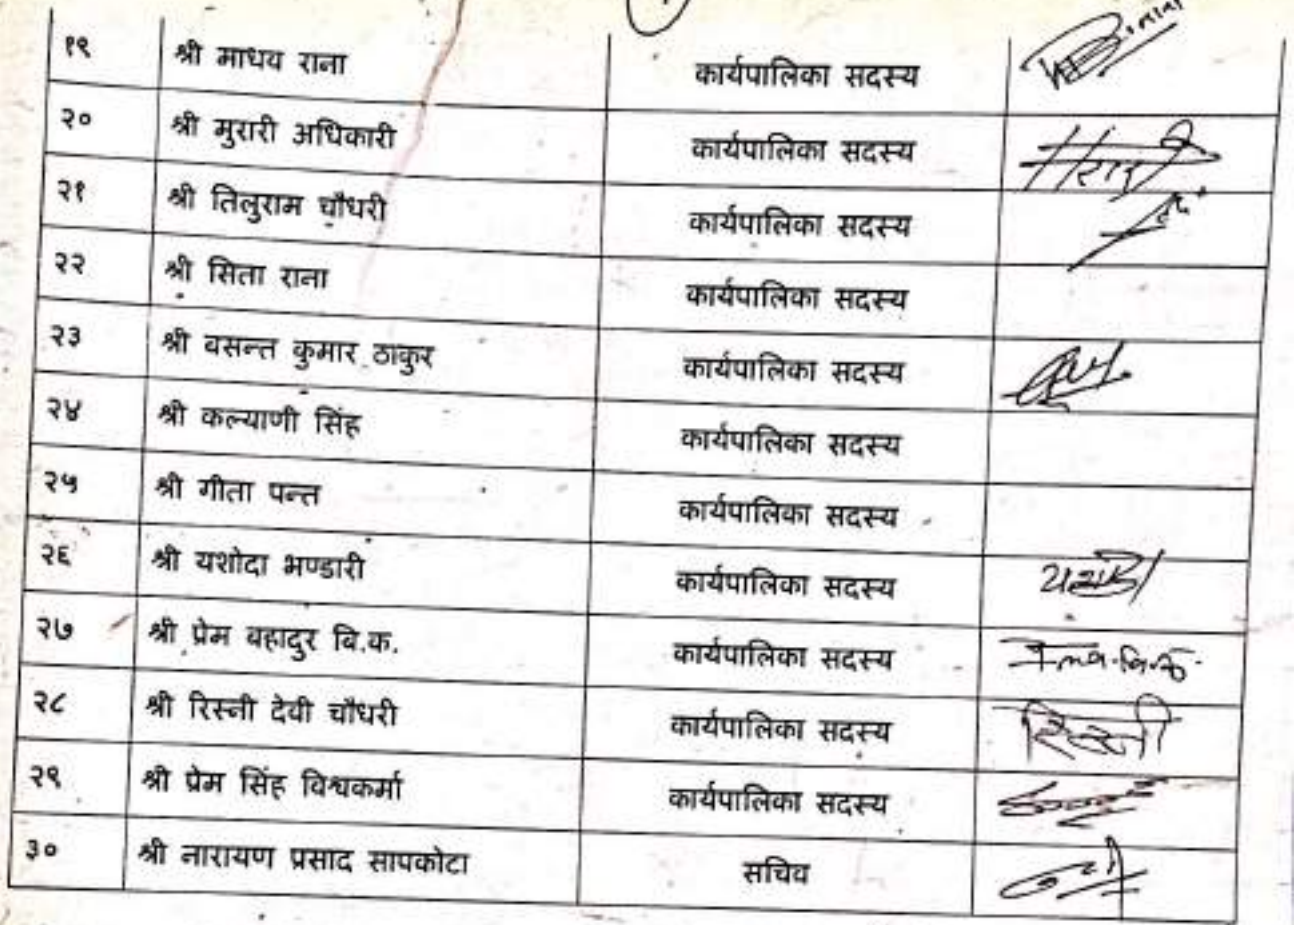 १९ श्री माधव राना कार्यपालिका सदस्य
२० श्री मुरारी अधिकारी कार्यपालिका सदस्य
२१ श्री तिलुराम चौधरी कार्यपालिका सदस्य
२२ श्री सिता राना कार्यपालिका सदस्य
२३ श्री वसन्त कुमार ठाकुर कार्यपालिका सदस्य
२४ श्री कल्याणी सिंह कार्यपालिका सदस्य
२५ श्री गीता पन्त कार्यपालिका सदस्य
२६ श्री यशोदा भण्डारी कार्यपालिका सदस्य
२७ श्री प्रेम बहादुर बि.क. कार्यपालिका सदस्य
२८ श्री रिस्नी देवी चौधरी कार्यपालिका सदस्य रिस्नी
२९ श्री प्रेम सिंह विश्वकर्मा कार्यपालिका सदस्य
३० श्री नारायण प्रसाद सापकोटा सचिव